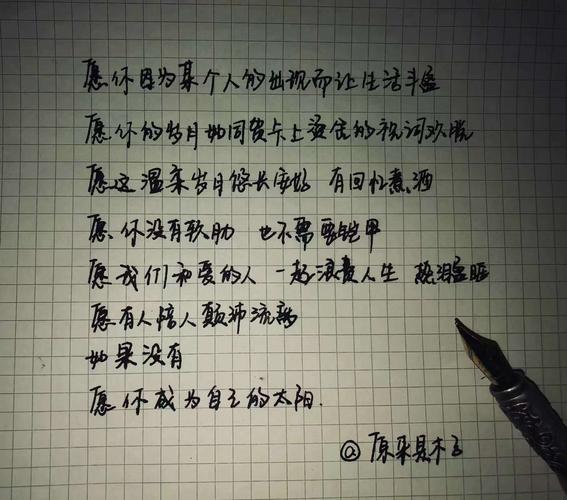 愿你因为某个人的出现而让生活丰盈
愿你的岁月如同贺卡上烫金的祝词欢脱
愿这温柔岁月悠长安好 有回忆煮酒
愿你没有软肋 也不需要铠甲
愿我们和爱的人 一起浪费人生 热泪盈眶
愿有人陪人颠沛流离
如果没有
愿你成为自己的太阳.
@原来是木子